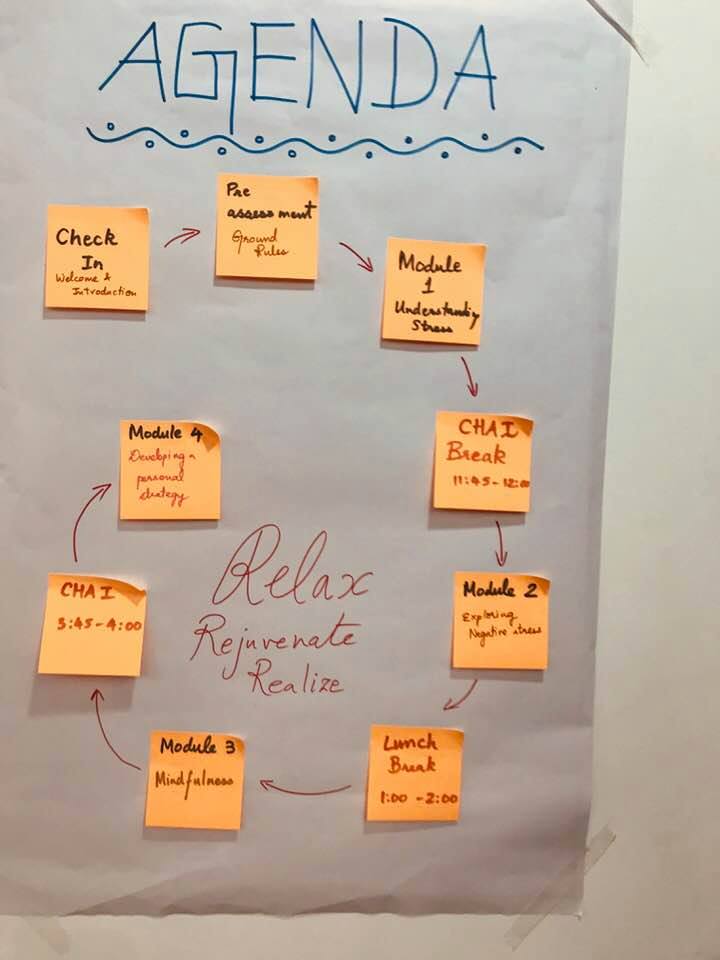 AGENDA
Check
In
Welcome &
Introduction
Pre
assessment
Ground
Rules
Module
1
Understanding
Stress
CHAI
Break
11:45 - 12:00
Module 2
Exploring
Negative stress
Lunch
Break
1:00 - 2:00
Module 3
Mindfulness
CHAI
3:45 - 4:00
Module 4
Developing a
personal
strategy
Relax
Rejuvenate
Realize